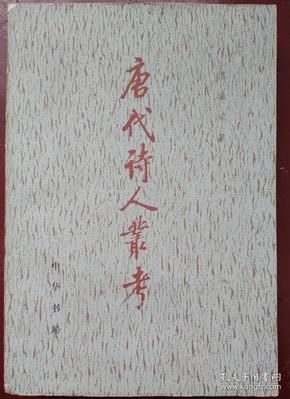 唐代诗人叢考
中华书局
孔夫子旧书网